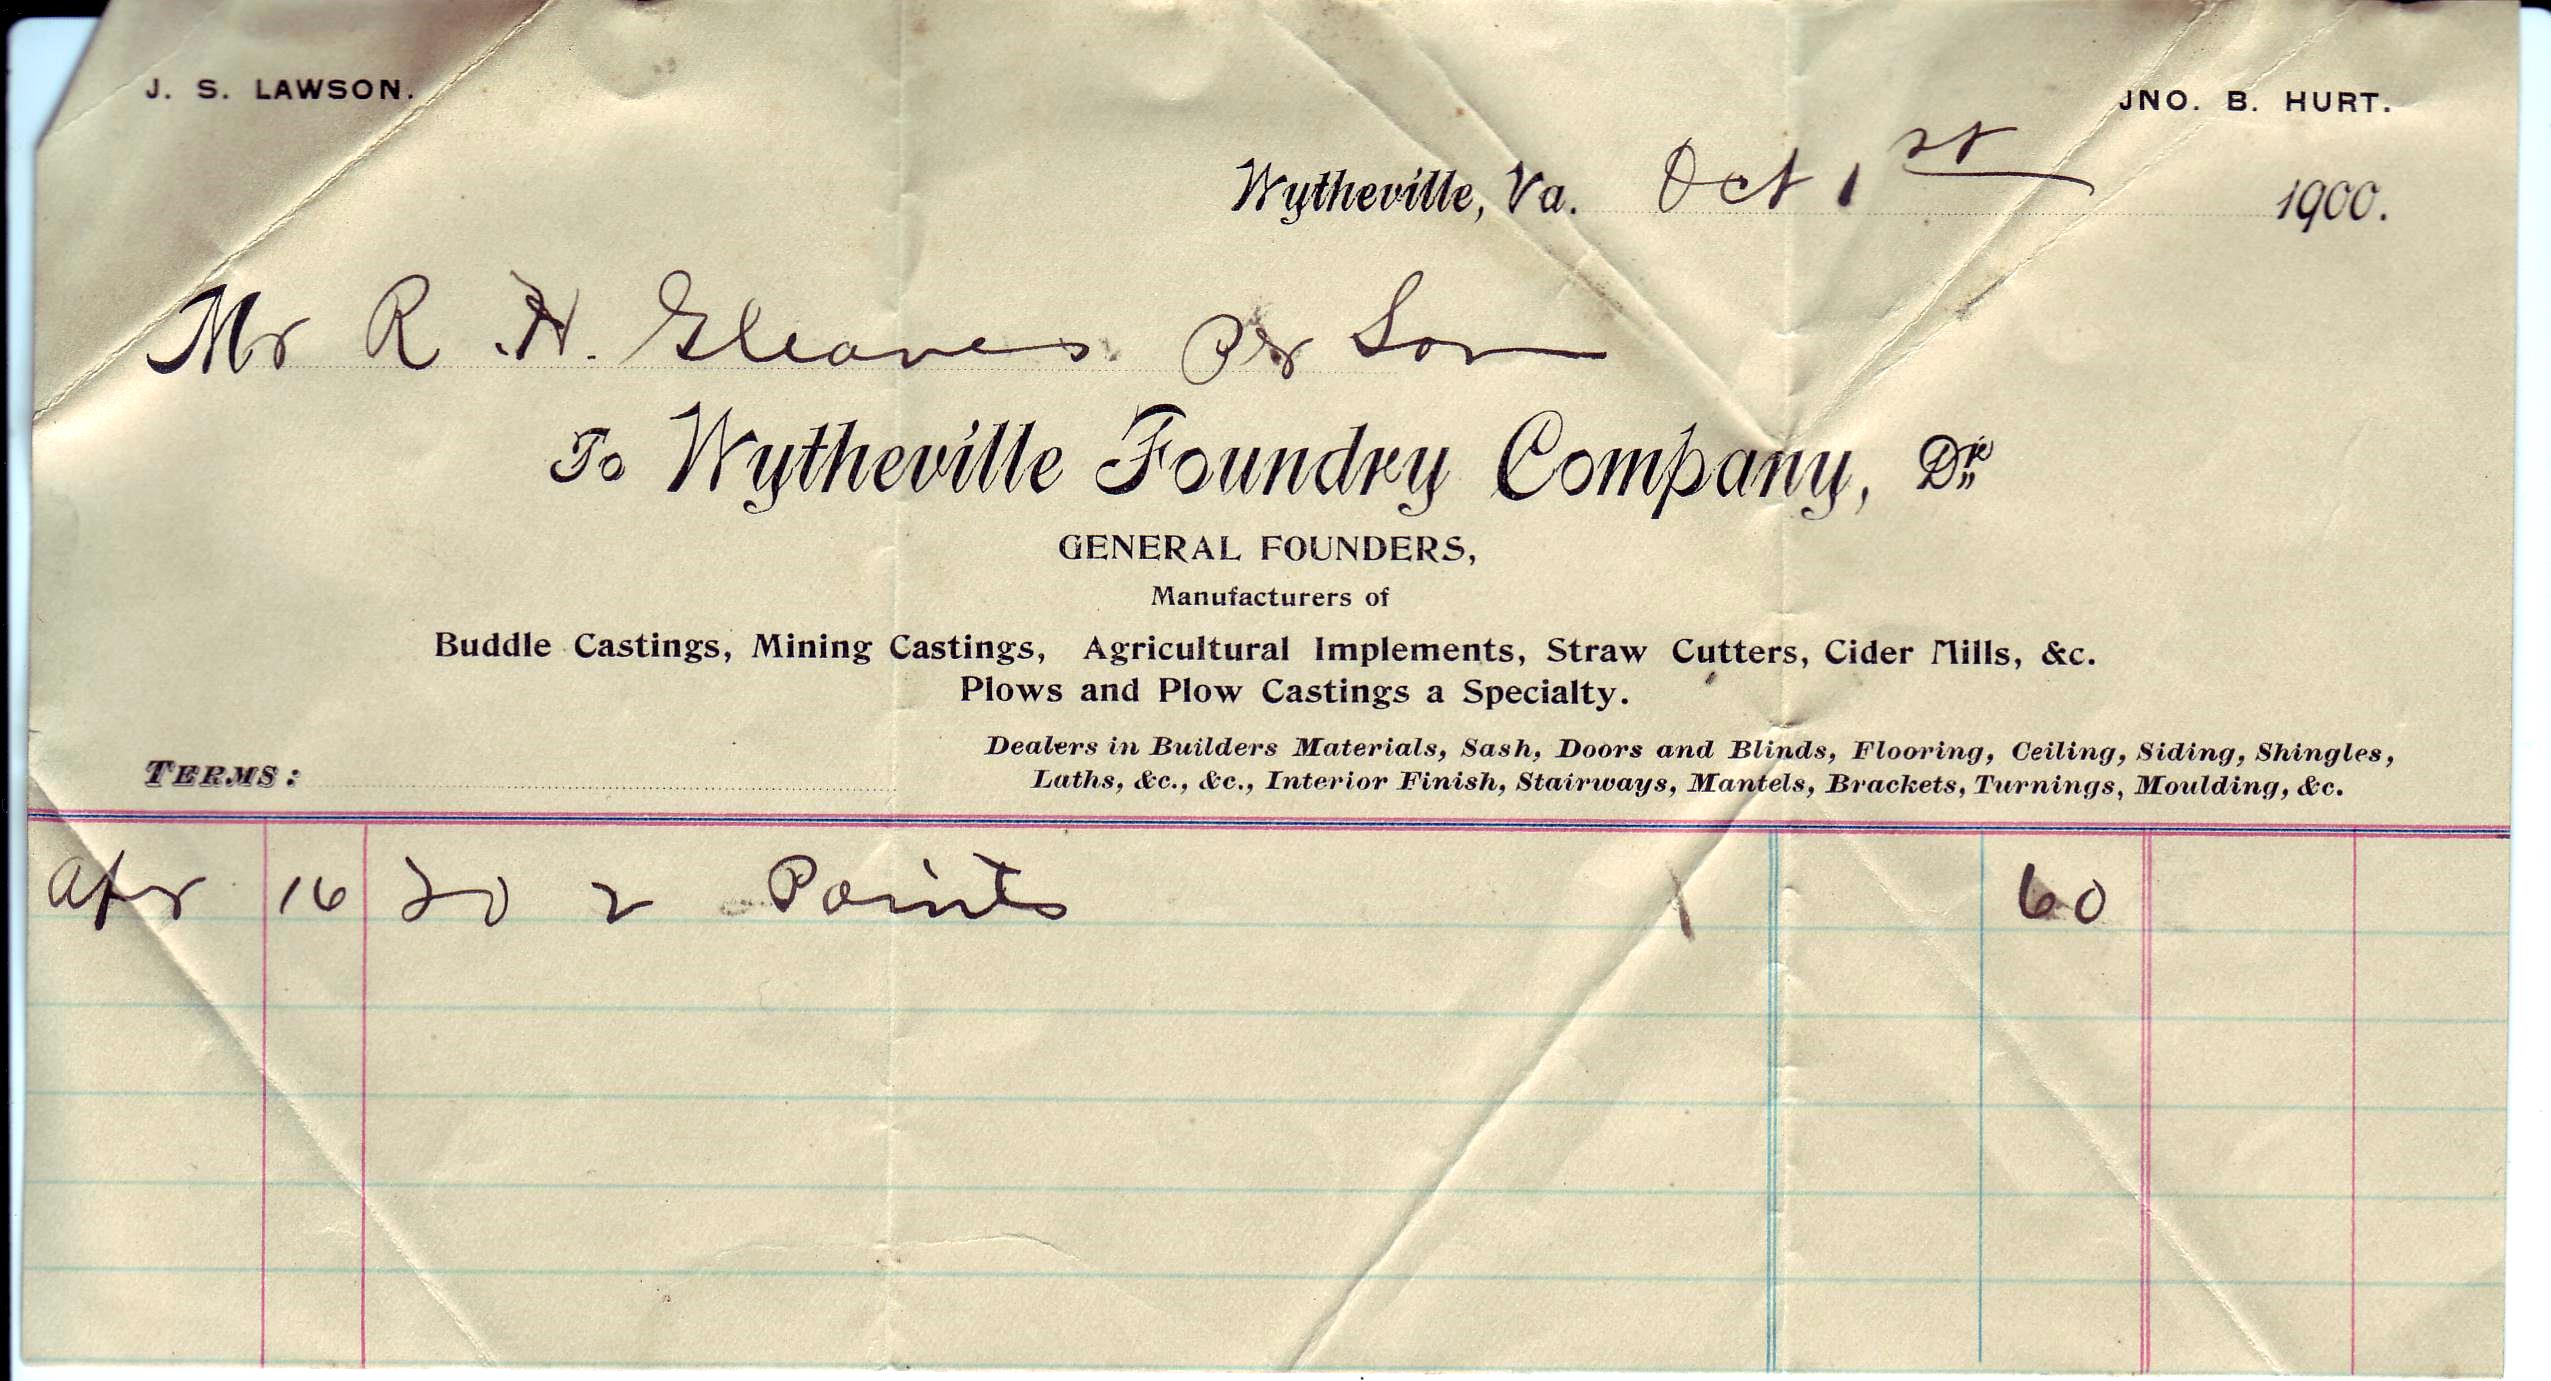 J. S. LAWSON.
JNO. B. HURT.
Wytheville, Va. Oct 1st 1900.
Mr R. H. Gleaves Per Son
To Wytheville Foundry Company, Dr.
GENERAL FOUNDERS,
Manufacturers of
Buddle Castings, Mining Castings, Agricultural Implements, Straw Cutters, Cider Mills, &c.
Plows and Plow Castings a Specialty.
Dealers in Builders Materials, Sash, Doors and Blinds, Flooring, Ceiling, Siding, Shingles,
TERMS: Laths, &c., &c., Interior Finish, Stairways, Mantels, Brackets, Turnings, Moulding, &c.
Apr 16 20 2 Points 60